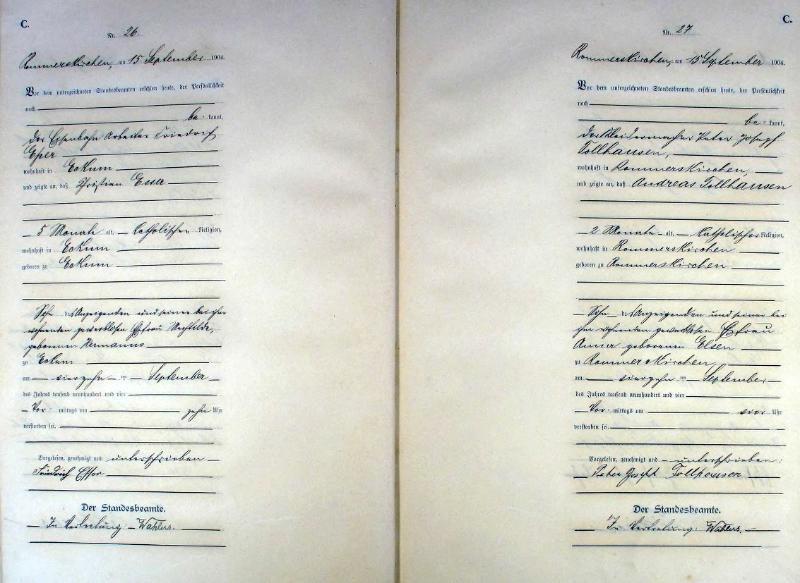 C.
Nr. 26
Rommerskirchen, am 15 September 1904.
Vor dem unterzeichneten Standesbeamten erschien heute, der Persönlichkeit
nach
be kannt,
der Eisenbahn Arbeiter Friedrich
wohnhaft in Eckum
und zeigte an, daß Christian Esser
5 Monate alt, katholischer Religion,
wohnhaft in Eckum
geboren zu Eckum
Sohn des Anzeigenden und seiner bei ihm
wohnenden gewerblosen Ehefrau Mechtilde,
geborenen Hermanns
zu Eckum
am vierzehn ten September
des Jahres tausend neunhundert und vier
Vor mittags um zehn Uhr
verstorben sei.
Vorgelesen, genehmigt und unterschrieben
Friedrich Esser
Der Standesbeamte.
In Vertretung: Wahlers.
C.
Nr. 27
Rommerskirchen, am 15 September 1904.
Vor dem unterzeichneten Standesbeamten erschien heute, der Persönlichkeit
nach
be kannt,
der Kleidermacher Peter Joseph
Tollhausen,
wohnhaft in Rommerskirchen,
und zeigte an, daß Andreas Tollhausen
2 Monate alt, katholischer Religion,
wohnhaft in Rommerskirchen
geboren zu Rommerskirchen
Sohn des Anzeigenden und seiner bei
ihm wohnenden gewerblosen Ehefrau
Anna geborenen Elsen
zu Rommerskirchen
am vierzehn ten September
des Jahres tausend neunhundert und vier
Vor mittags um vier Uhr
verstorben sei.
Vorgelesen, genehmigt und unterschrieben:
Peter Joseph Tollhausen
Der Standesbeamte.
In Vertretung: Wahlers.